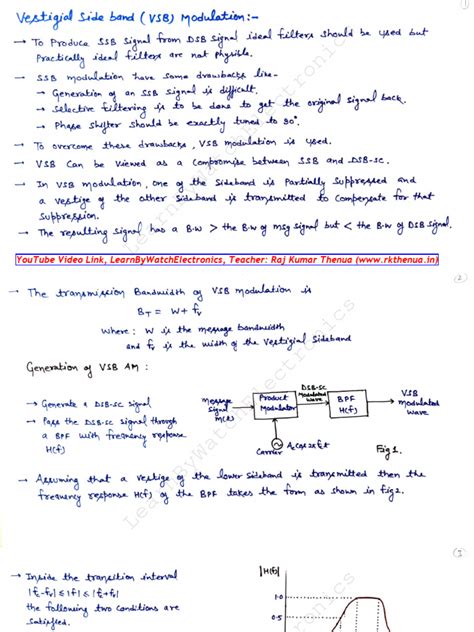 Vestigial Side band (VSB) Modulation:-
①
→ To Produce SSB Signal from DSB Signal ideal filters should be used but
Practically ideal filters are not physible.
→ SSB modulation have some drawbacks like-
→ Generation of an SSB signal is difficult.
→ Selective filtering is to be done to get the original signal back.
→ Phase shifter should be exactly tuned to 90°.
→ To overcome these drawbacks, VSB modulation is used.
→ VSB Can be viewed as a Compromise between SSB and DSB-SC.
→ In VSB modulation, one of the Sideband is Partially Suppressed and
a vestige of the other Sideband is transmitted to Compensate for that
Suppression.
→ The resulting signal has a B.W > the B.W of msg signal but < the B.W of DSB signal.
YouTube Video Link, LearnByWatchElectronics, Teacher: Raj Kumar Thenua (www.rkthenua.in)
②
→ The transmission Bandwidth of VSB modulation is
B_T = W + f_v
Where: W is the message bandwidth
and f_v is the width of the Vestigial Sideband
Generation of VSB AM :
→ Generate a DSB-SC signal
→ Pass the DSB-SC signal through
a BPF with frequency response
H(f)
Message
Signal
m(t)
Product
Modulator
DSB-SC
Modulated
wave
BPF
H(f)
VSB
modulated
wave
Carrier
A_c Cos 2π f_c t
Fig 1.
→ Assuming that a vestige of the lower Sideband is transmitted then the
frequency response H(f) of the BPF takes the form as shown in fig2.
③
→ Inside the transition interval
|f_c-f_v| ≤ |f| ≤ |f_c+f_v|
the following two conditions are
Satisfied.
|H(f)|
1.0
0.5
LearnByWatchElectronics
LearnByWatchElectronics